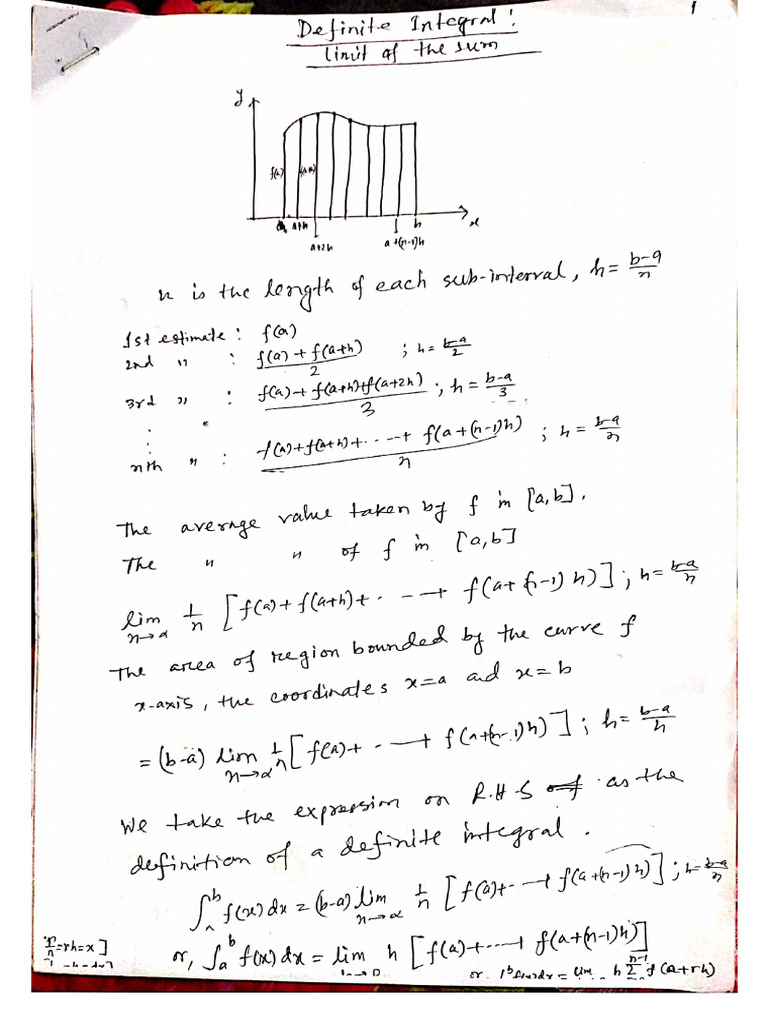 1
Definite Integral:
Limit of the sum
y
f(a)
f(a+h)
x
a a+h b
a+2h a+(n-1)h
h is the length of each sub-interval, h = b-a/n
1st estimate : f(a)
2nd " : f(a)+f(a+h)/2 ; h = b-a/2
3rd " : f(a)+f(a+h)+f(a+2h)/3 ; h = b-a/3
nth " : f(a)+f(a+h)+....+ f(a+(n-1)h)/n ; h = b-a/n
The average value taken by f in [a,b].
The " " of f in [a,b]
lim n→α 1/n [f(a)+f(a+h)+.--+ f(a+(n-1)h)]; h = b-a/n
The area of region bounded by the curve f
x-axis, the coordinates x=a and x=b
=(b-a) lim n→α 1/n [f(a)+.--+ f(a+(n-1)h)]; h = b-a/h
We take the expression on R.H.S as the
definition of a definite integral.
∫ b f(x)dx = (b-a) lim n→α 1/n [f(a)+.--+ f(a+(n-1)h)]; h = b-a/n
or, ∫ₐᵇ f(x)dx = lim h [f(a)+....+ f(a+(n-1)h)]
=rh=x]
or. f(x)dx = lim h n-1 Σ f(a+rh)